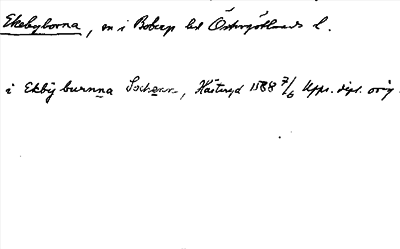 Ekebyborna, sn i Bobergs hd Östergötlands l.
i Ekbÿ burnna Sochenn, Hästeryd 1588 7/6 Upps. dipl. orig.